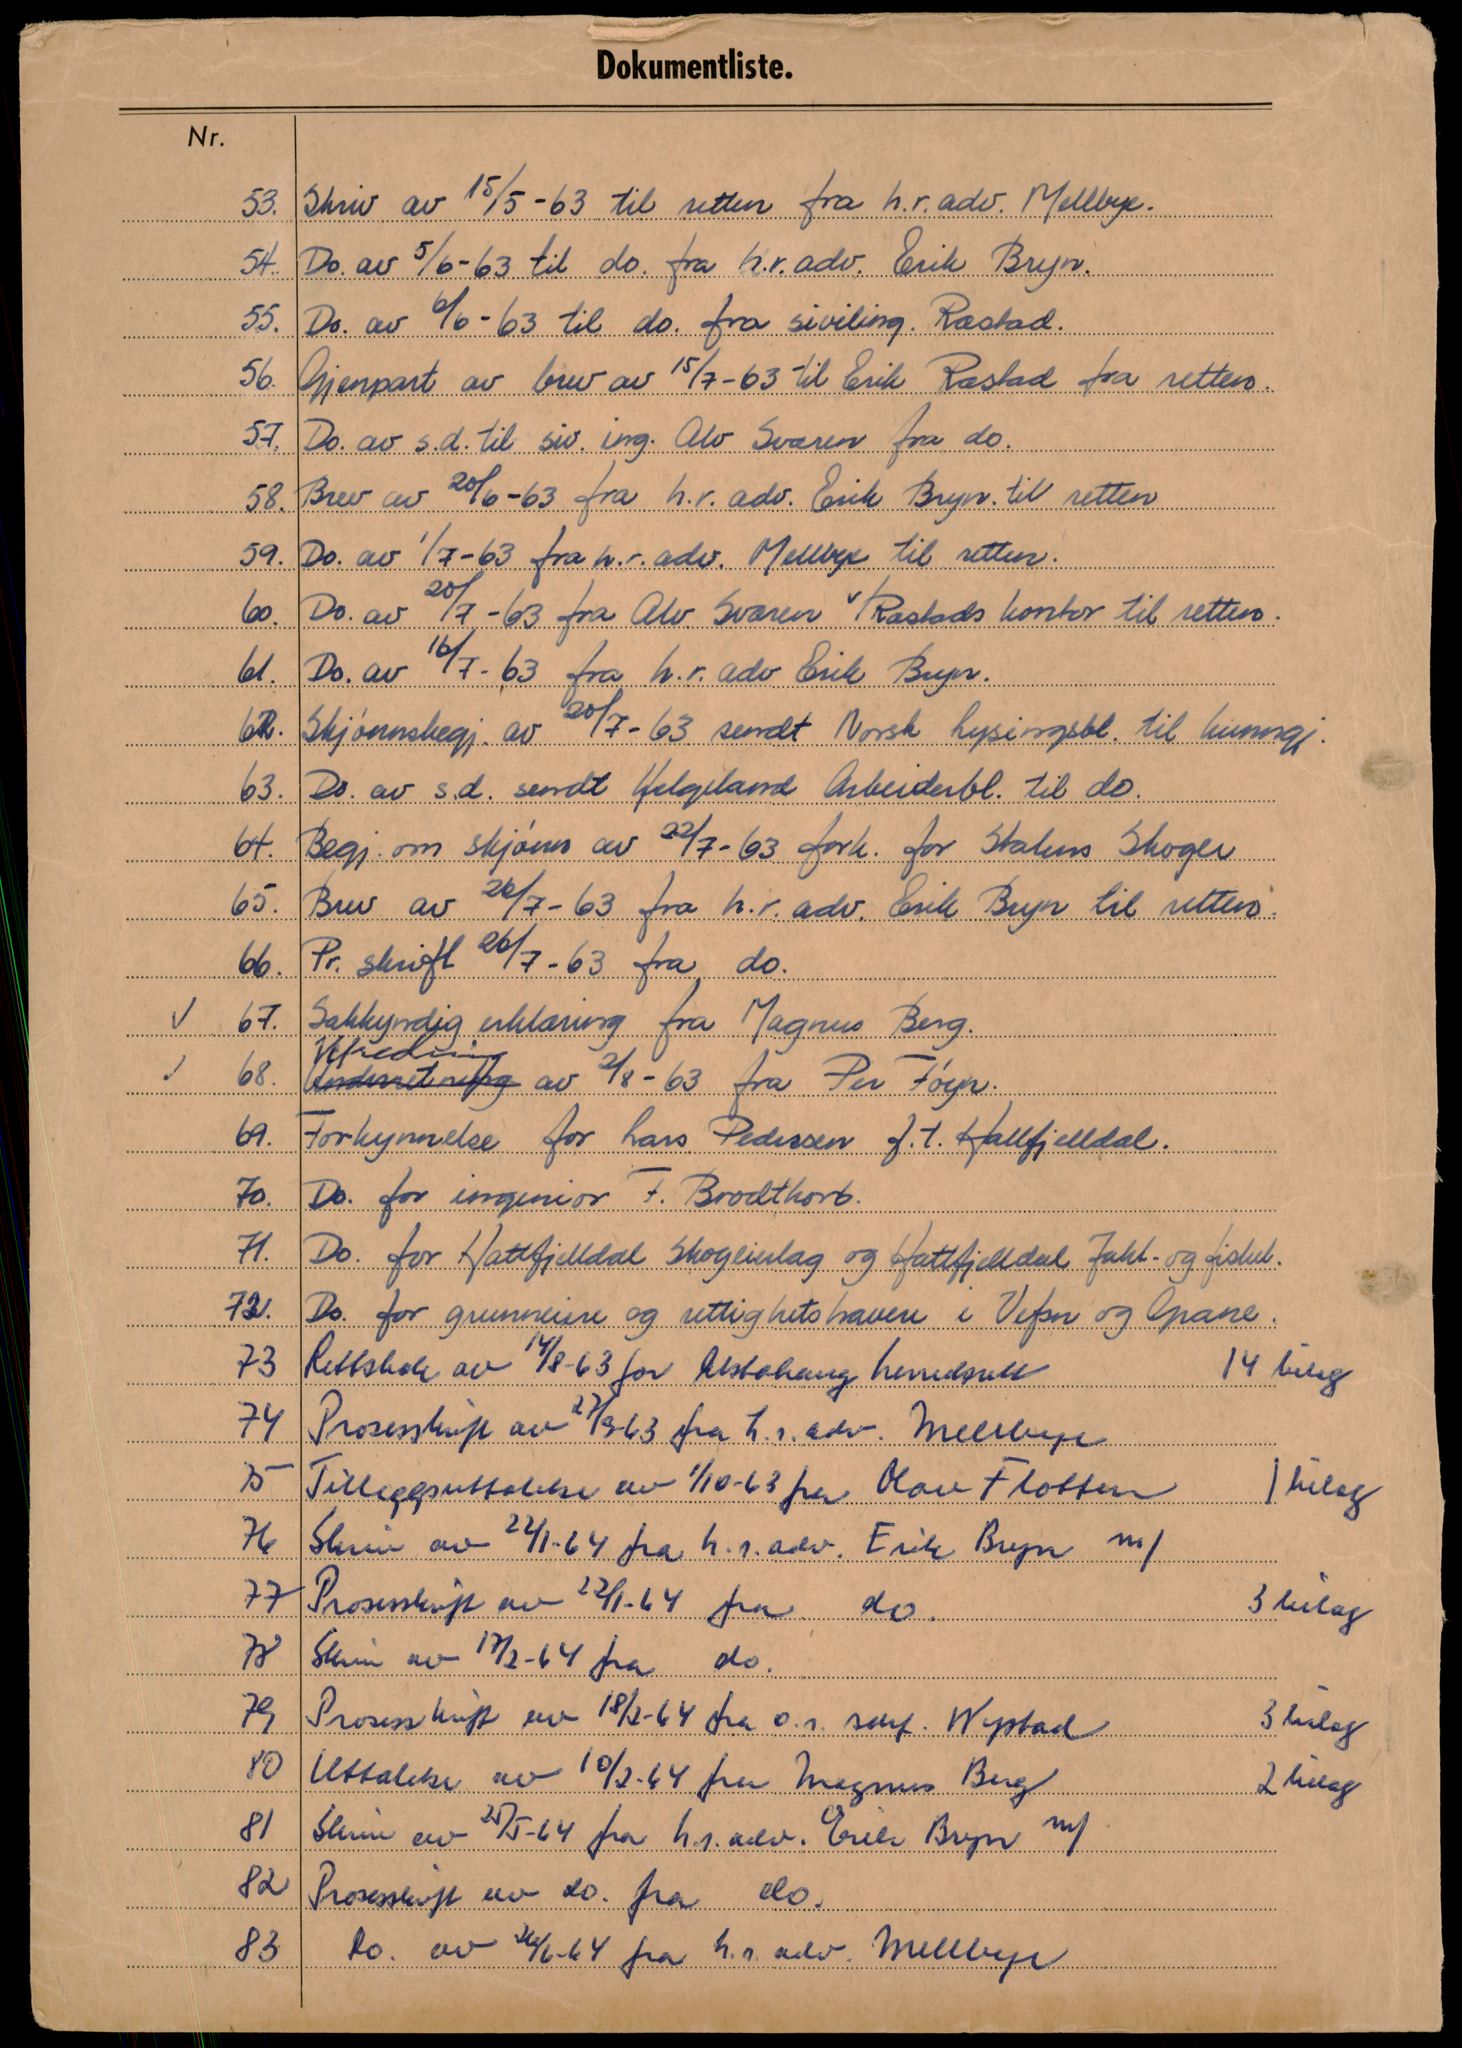 Dokumentliste.
Nr.
53. Skriv av 15/5-63 til retten fra h.r.adv. Mellbye.
54. Do. av 5/6-63 til do. fra h.r.adv. Erik Bryn.
55. Do. av 6/6-63 til do. fra siviling. Ræstad.
56. Gjenpart av brev av 15/7-63 til Erik Ræstad fra retten.
57. Do. av s.d. til siv. ing. Alv Sværen fra do.
58. Brev av 20/6-63 fra h.r. adv. Erik Bryn. til retten
59. Do. av 1/7-63 fra h.r.adv. Mellbye til retten.
60. Do. av 20/7-63 fra Alv Sværen v/Ræstads kontor til retten.
61. Do. av 16/7-63 fra h.r. adv Erik Bryn.
62. Skjønnsbegj. av 20/7-63 sendt Norsk lysingsbl. til kunngj.
63. Do. av s.d. sendt Helgeland Arbeiderbl. til do.
64. Begj. om skjønn av 22/7-63 fork. for Statens Skoger
65. Brev av 26/7-63 fra h.r. adv. Erik Bryn til retten.
66. Pr. skrift 26/7-63 fra do.
✓ 67. Sakkyndig erklæring fra Magnus Berg.
Utredning
✓ 68. av 2/8-63 fra Per Føyn.
69. Forkynnelse for Lars Pedersen f.t. Hattfjelldal.
70. Do. for ingeniør F. Brodtkorb.
71. Do. for Hattfjelldal Skogeierlag og Hattfjelldal Jakt- og fiskel.
72. Do. for grunneiere og rettighetshavere i Vefsn og Grane.
73 Rettsbok av 14/8-63 for Alstahaug herredsrett 14 bilag
74 Prosesskrift av 27/9-63 fra h.r.adv. Mellbye
75 Tilleggsuttalelse av 1/10-63 fra Olav Flotten 1 bilag
76 Skriv av 22/1-64 fra h.r.adv. Erik Bryn m/
77 Prosesskrift av 22/1-64 fra do. 3 bilag
78 Skriv av 17/2-64 fra do.
79 Prosesskrift av 18/2-64 fra o.r. sakf. Wystad 3 bilag
80 Uttalelse av 10/2-64 fra Magnus Berg 2 bilag
81 Skriv av 25/5-64 fra h.r.adv. Erik Bryn m/
82 Prosesskrift av do. fra do.
83 Do. av 26/6-64 fra h.r. adv. Mellbye